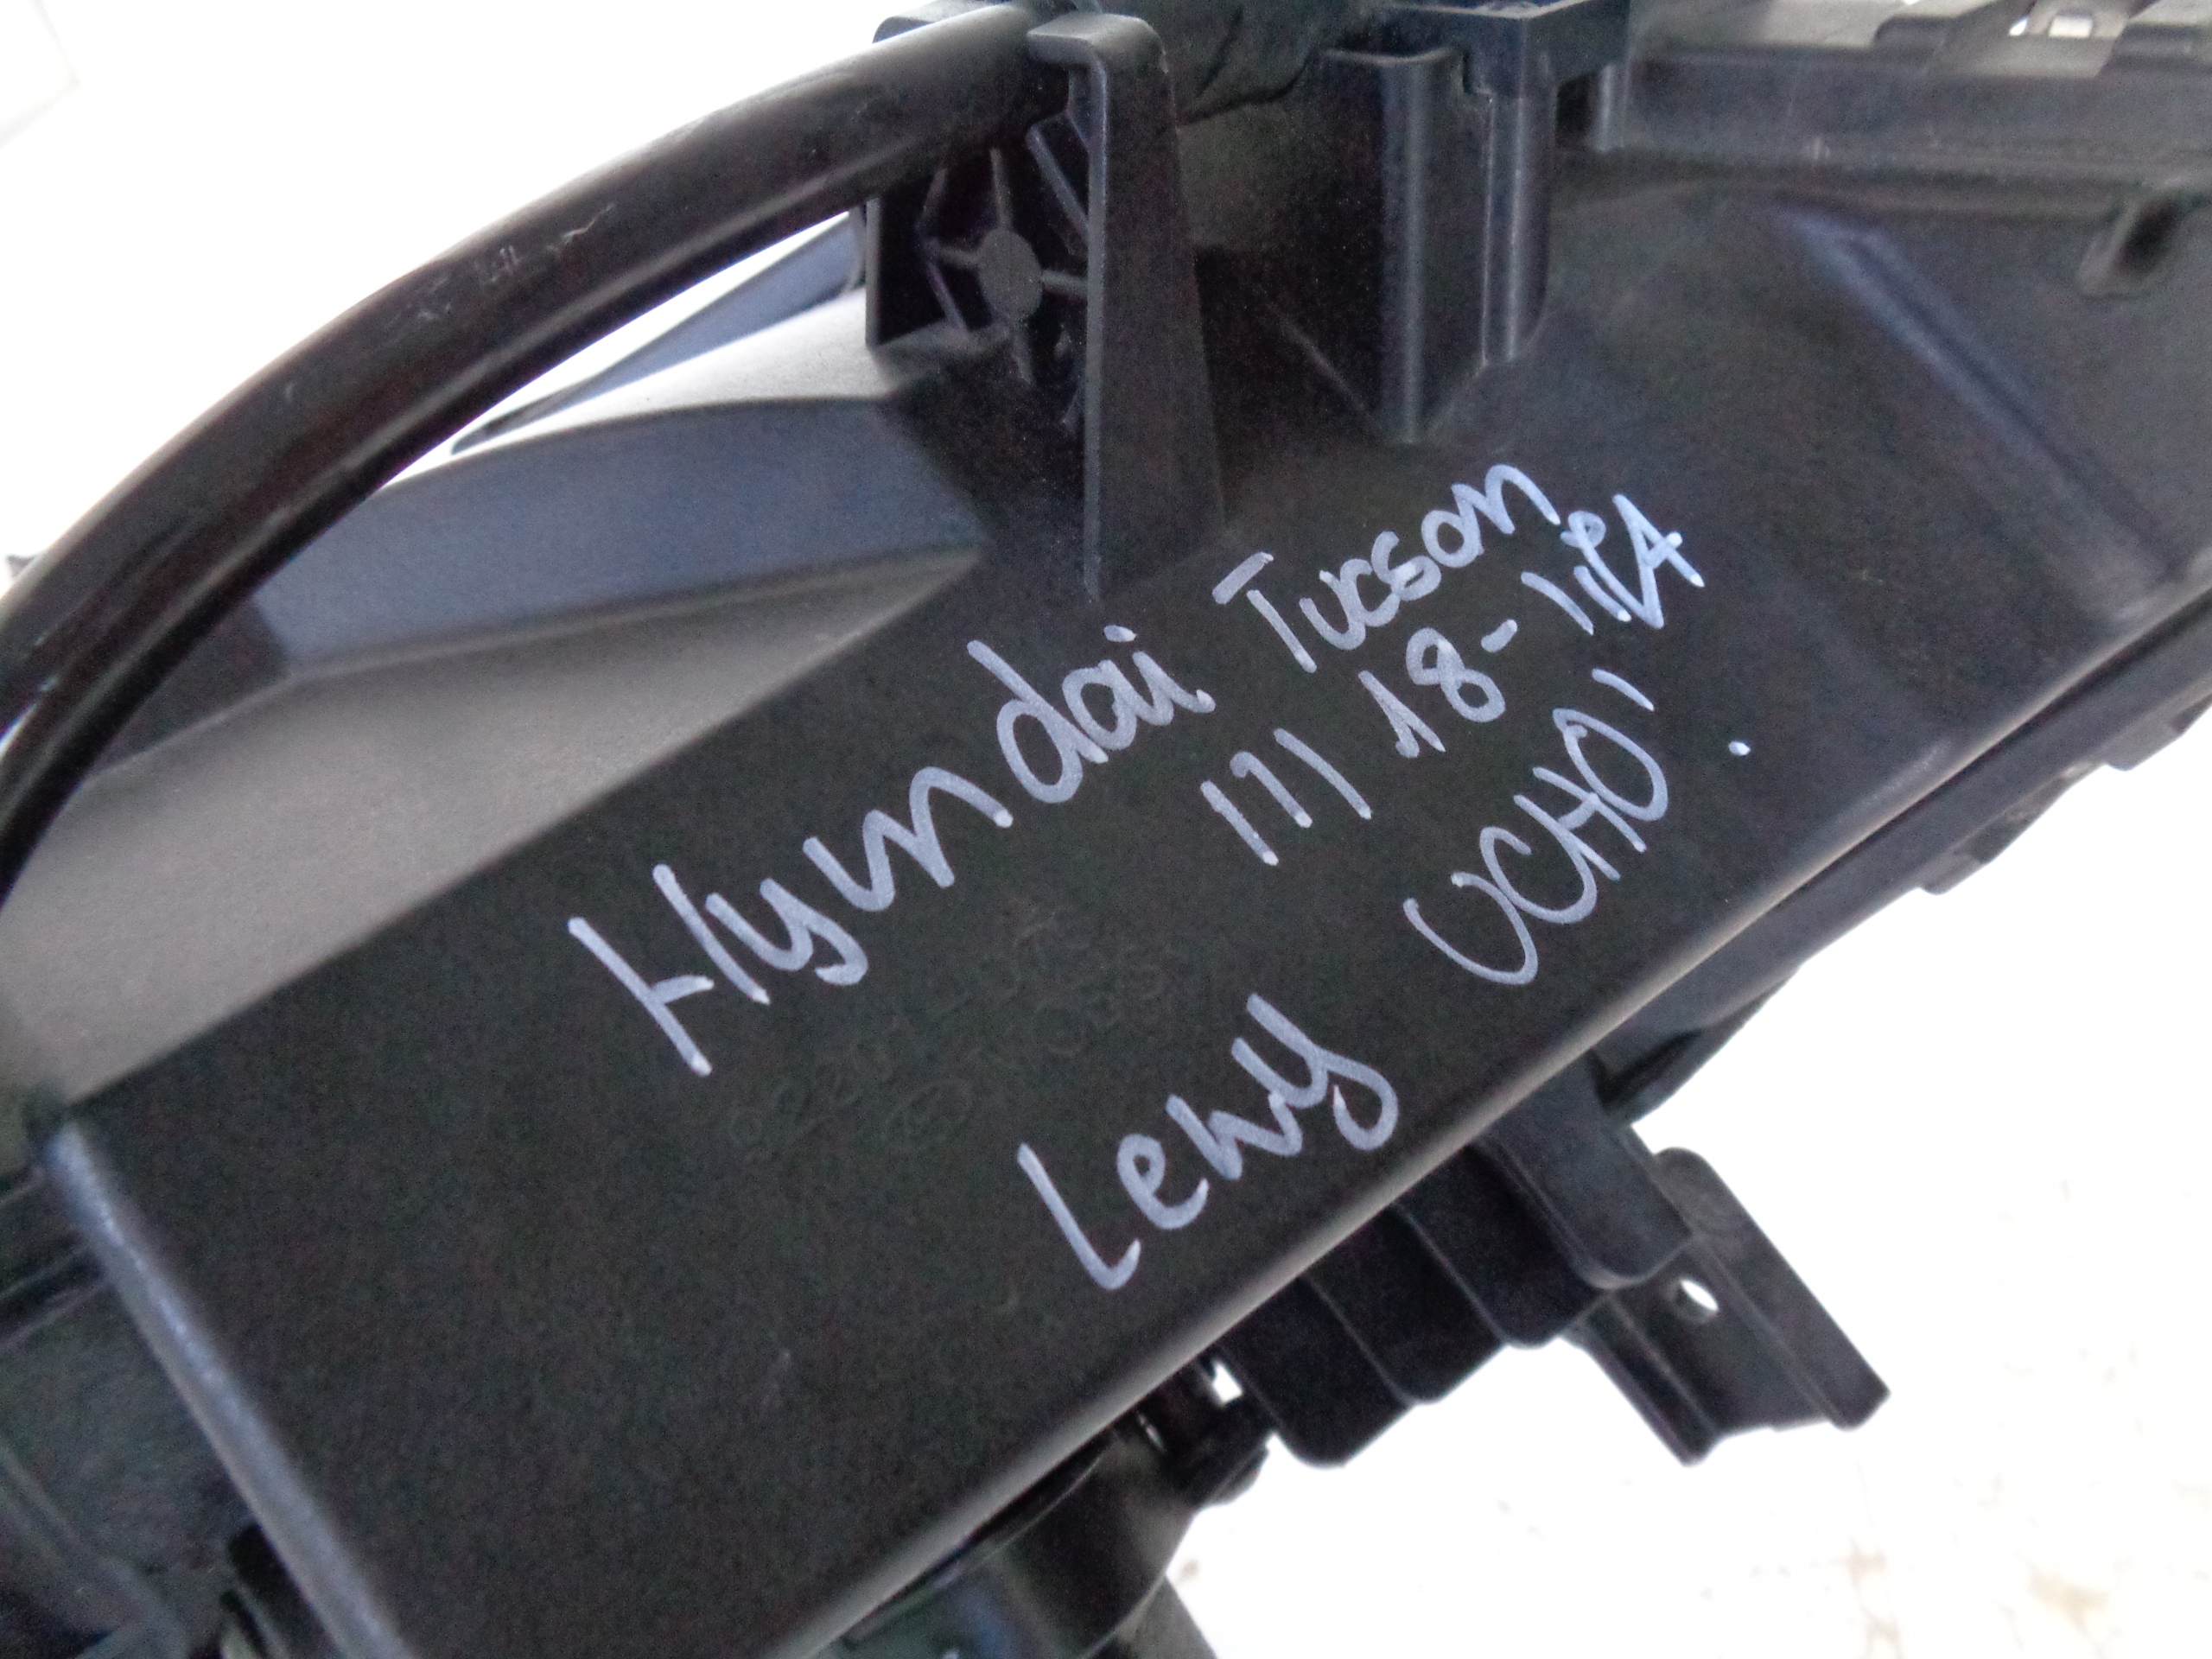 Hyundai Tucson
III 18-
Lewy UCHO!